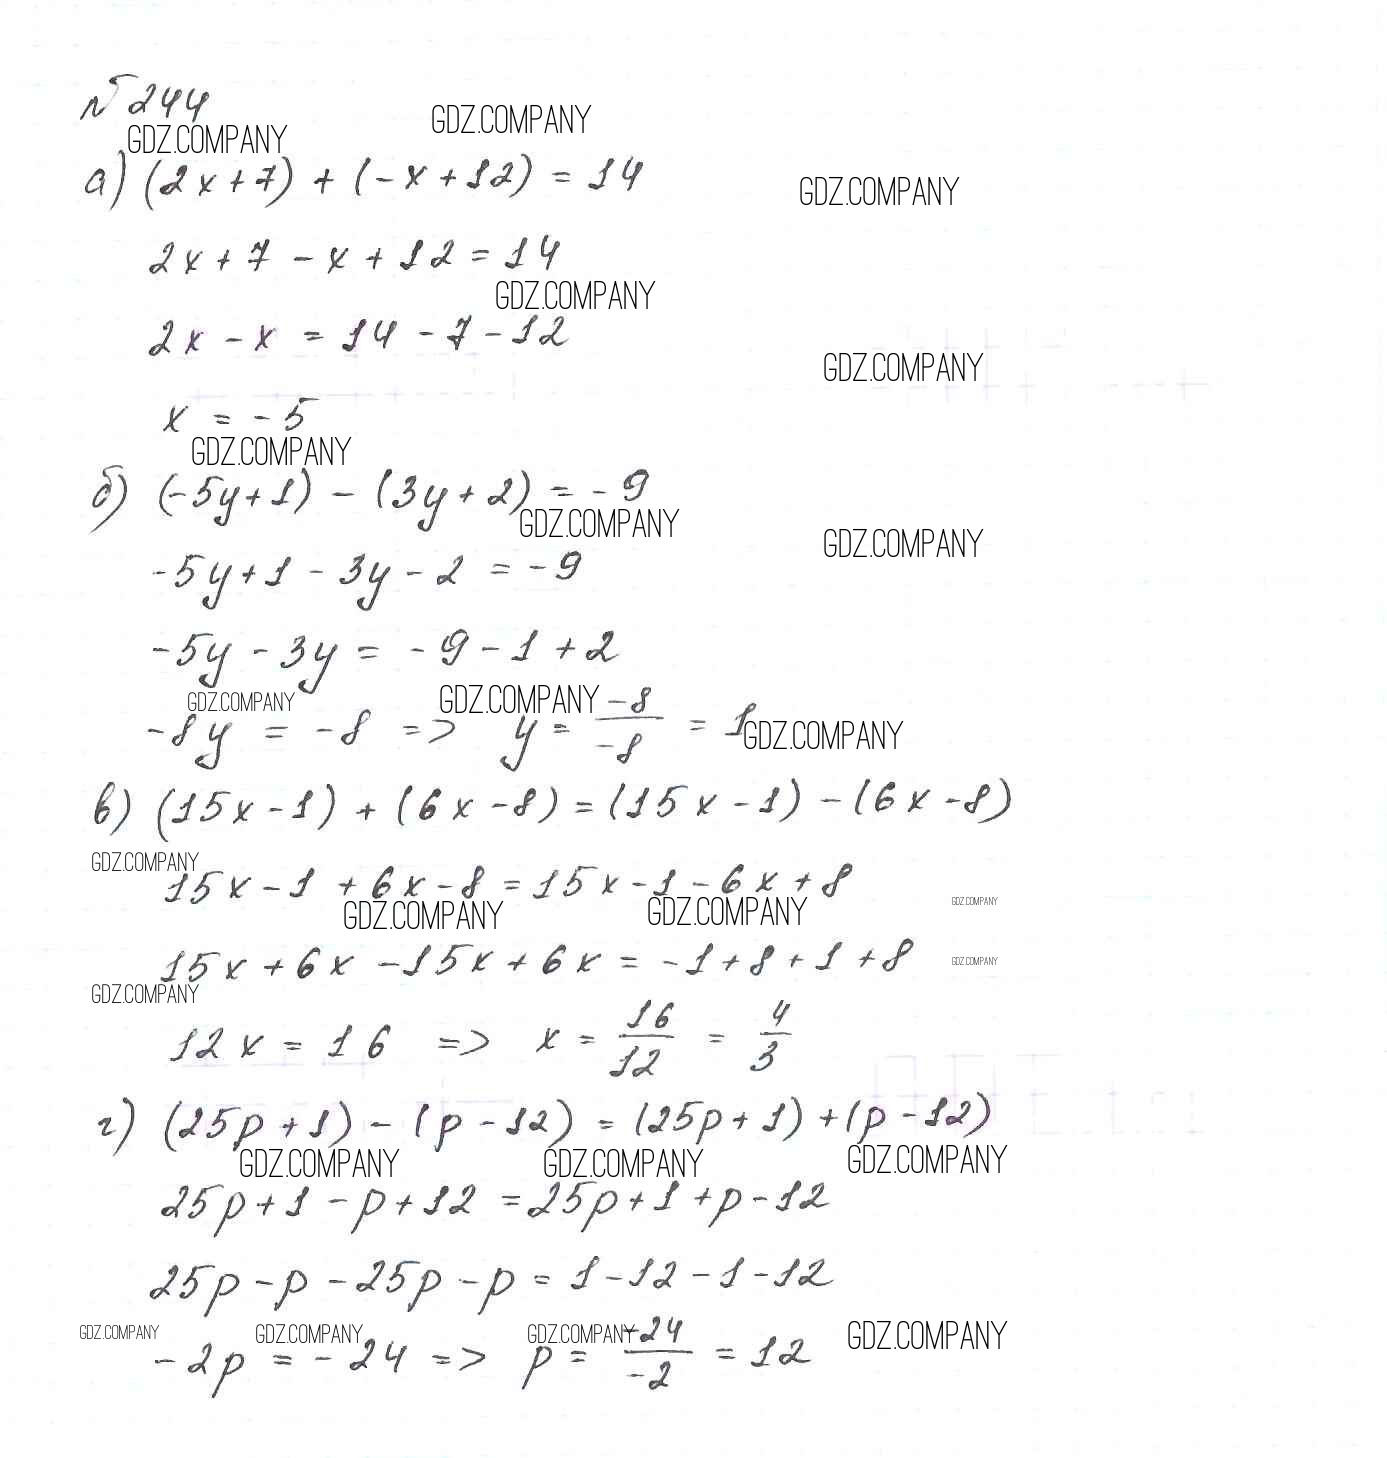 №244
GDZ.COMPANY GDZ.COMPANY
а) (2x+7) + (-x+12) = 14
GDZ.COMPANY
2x+7 - x + 12 = 14
GDZ.COMPANY
2x - x = 14 - 7 - 12
GDZ.COMPANY
x = -5
GDZ.COMPANY
б) (-5y+1) - (3y+2) = -9
GDZ.COMPANY GDZ.COMPANY
-5y+1 - 3y - 2 = -9
-5y - 3y = -9 - 1 + 2
GDZ.COMPANY GDZ.COMPANY GDZ.COMPANY
-8y = -8 => y = -8/-8 = 1
в) (15x-1) + (6x-8) = (15x-1) - (6x-8)
GDZ.COMPANY
15x-1 + 6x-8 = 15x-1-6x+8
GDZ.COMPANY GDZ.COMPANY GDZ.COMPANY
15x+6x-15x+6x = -1+8+1+8
GDZ.COMPANY GDZ.COMPANY
12x = 16 => x = 16/12 = 4/3
г) (25p+1) - (p-12) = (25p+1) + (p-12)
GDZ.COMPANY GDZ.COMPANY GDZ.COMPANY
25p+1-p+12 = 25p+1+p-12
25p-p-25p-p = 1-12-1-12
GDZ.COMPANY GDZ.COMPANY GDZ.COMPANY GDZ.COMPANY
-2p = -24 => p = -24/-2 = 12